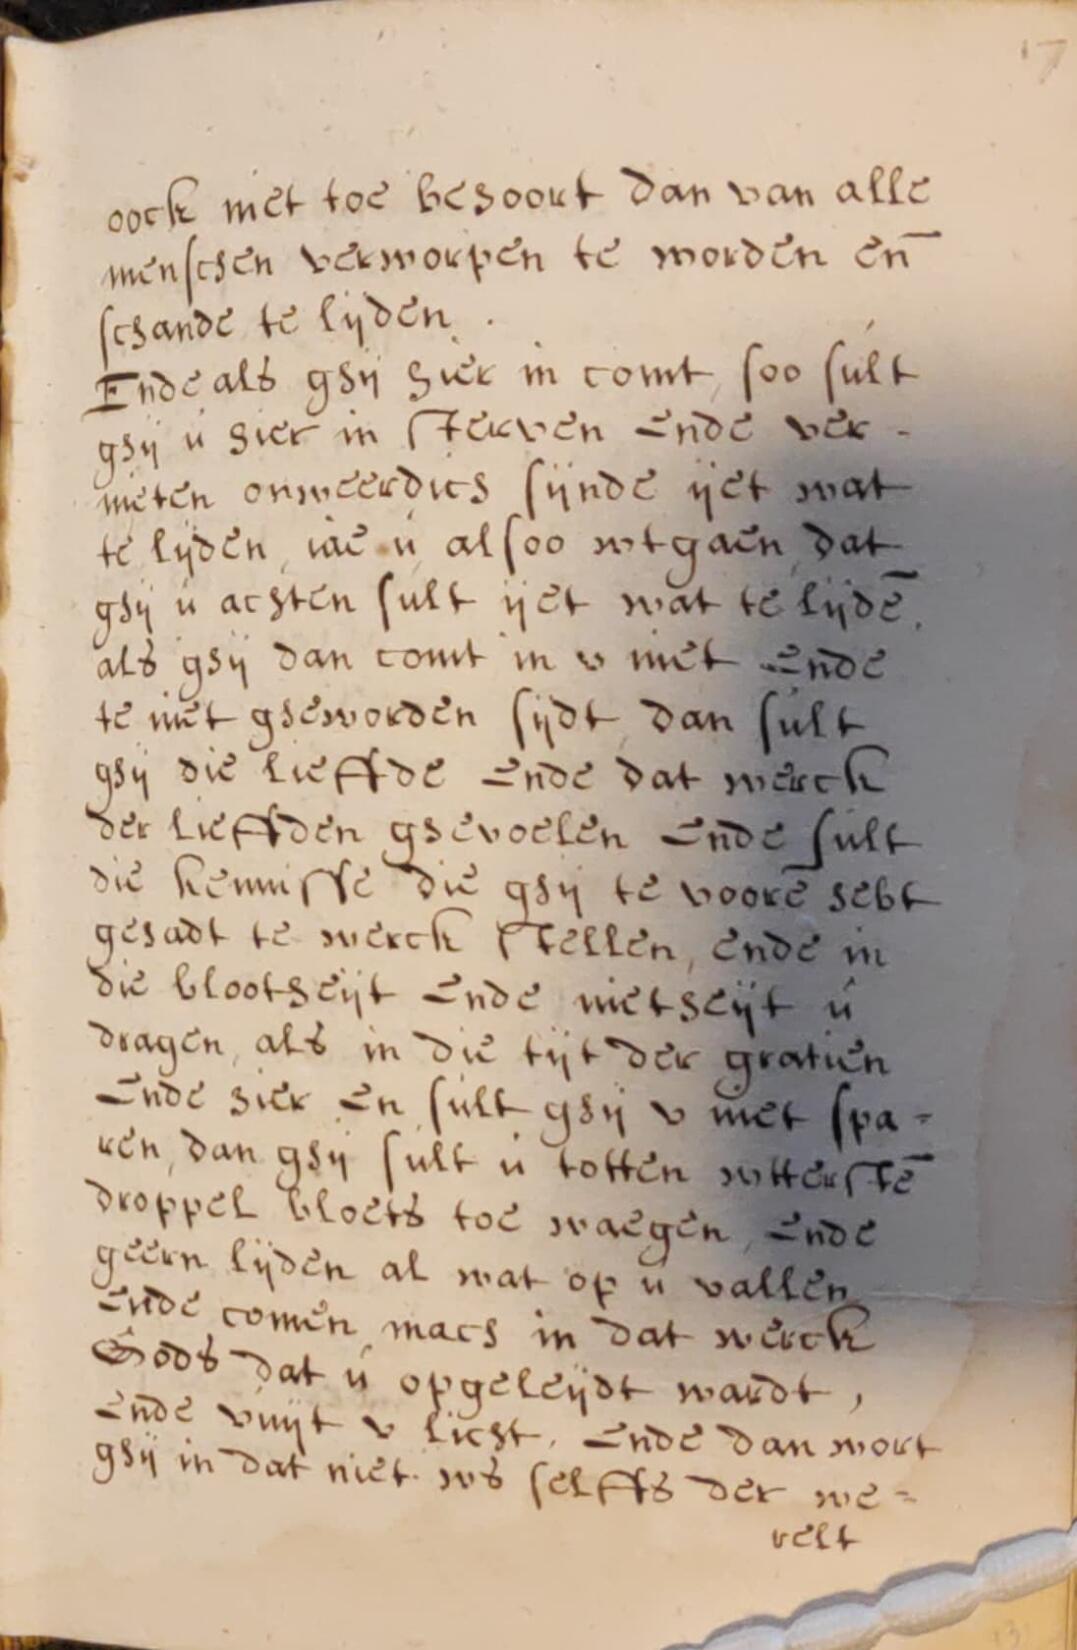 17
oock niet toe behoort dan van alle
menschen verworpen te worden en̄
schande te lijden .
Ende als ghij hier in comt, soo sult
ghij ú hier in sterven Ende ver -
nieten onweerdich sijnde ijet wat
te lijden, iae ú alsoo wtgaen, dat
ghij ú achten sult ijet wat te lijdē,
als ghij dan comt in v niet Ende
te niet gheworden sijdt, dan sult
ghij die lieffde Ende dat werck
der lieffden ghevoelen Ende sult
die kennisse die ghij te voorē hebt
gehadt te werck stellen, Ende in
die blootheijt Ende nietheijt ú
dragen, als in die tijt der gratien
Ende hier En sult ghij v niet spa =
ren, dan ghij sult ú totten wtterstē
droppel bloets toe waegen, Ende
geern lijden al wat op ú vallen
Ende comen mach in dat werck
Gods dat ú opgeleijdt wardt,
Ende vuijt v licht. Ende dan wort
ghij in dat niet ws selffs der we =
relt